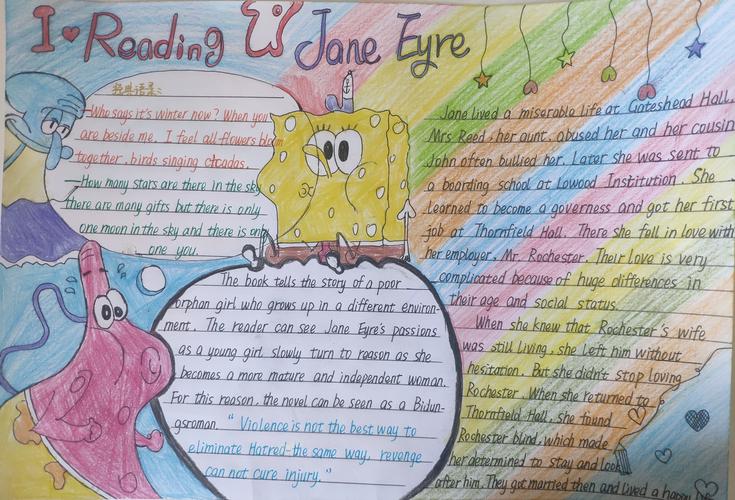 I Reading Jane Eyre
经典语录:
Who says it's winter now? When you
are beside me, I feel all flowers bloom
together, birds singing cicadas.
How many stars are there in the sky
there are many gifts but there is only
one moon in the sky and there is only
one you.
The book tells the story of a poor
orphan girl who grows up in a different environ-
ment. The reader can see Jane Eyre's passions
as a young girl slowly turn to reason as she
becomes a more mature and independent woman.
For this reason, the novel can be seen as a Bidun-
gsroman. "Violence is not the best way to
eliminate Hatred-the same way, revenge
can not cure injury."
Jane lived a miserable life at Gateshead Hall.
Mrs Reed, her aunt, abused her and her cousin
John often bullied her. Later she was sent to
a boarding school at Lowood Institution. She
learned to become a governess and got her first
job at Thornfield Hall. There she fell in love with
her employer, Mr. Rochester. Their love is very
complicated because of huge differences in
their age and social status.
When she knew that Rochester's wife
was still living, she left him without
hesitation. But she didn't stop loving
Rochester. When she returned to
Thornfield Hall, she found
Rochester blind, which made
her determined to stay and look
after him. They got married then and lived a happy